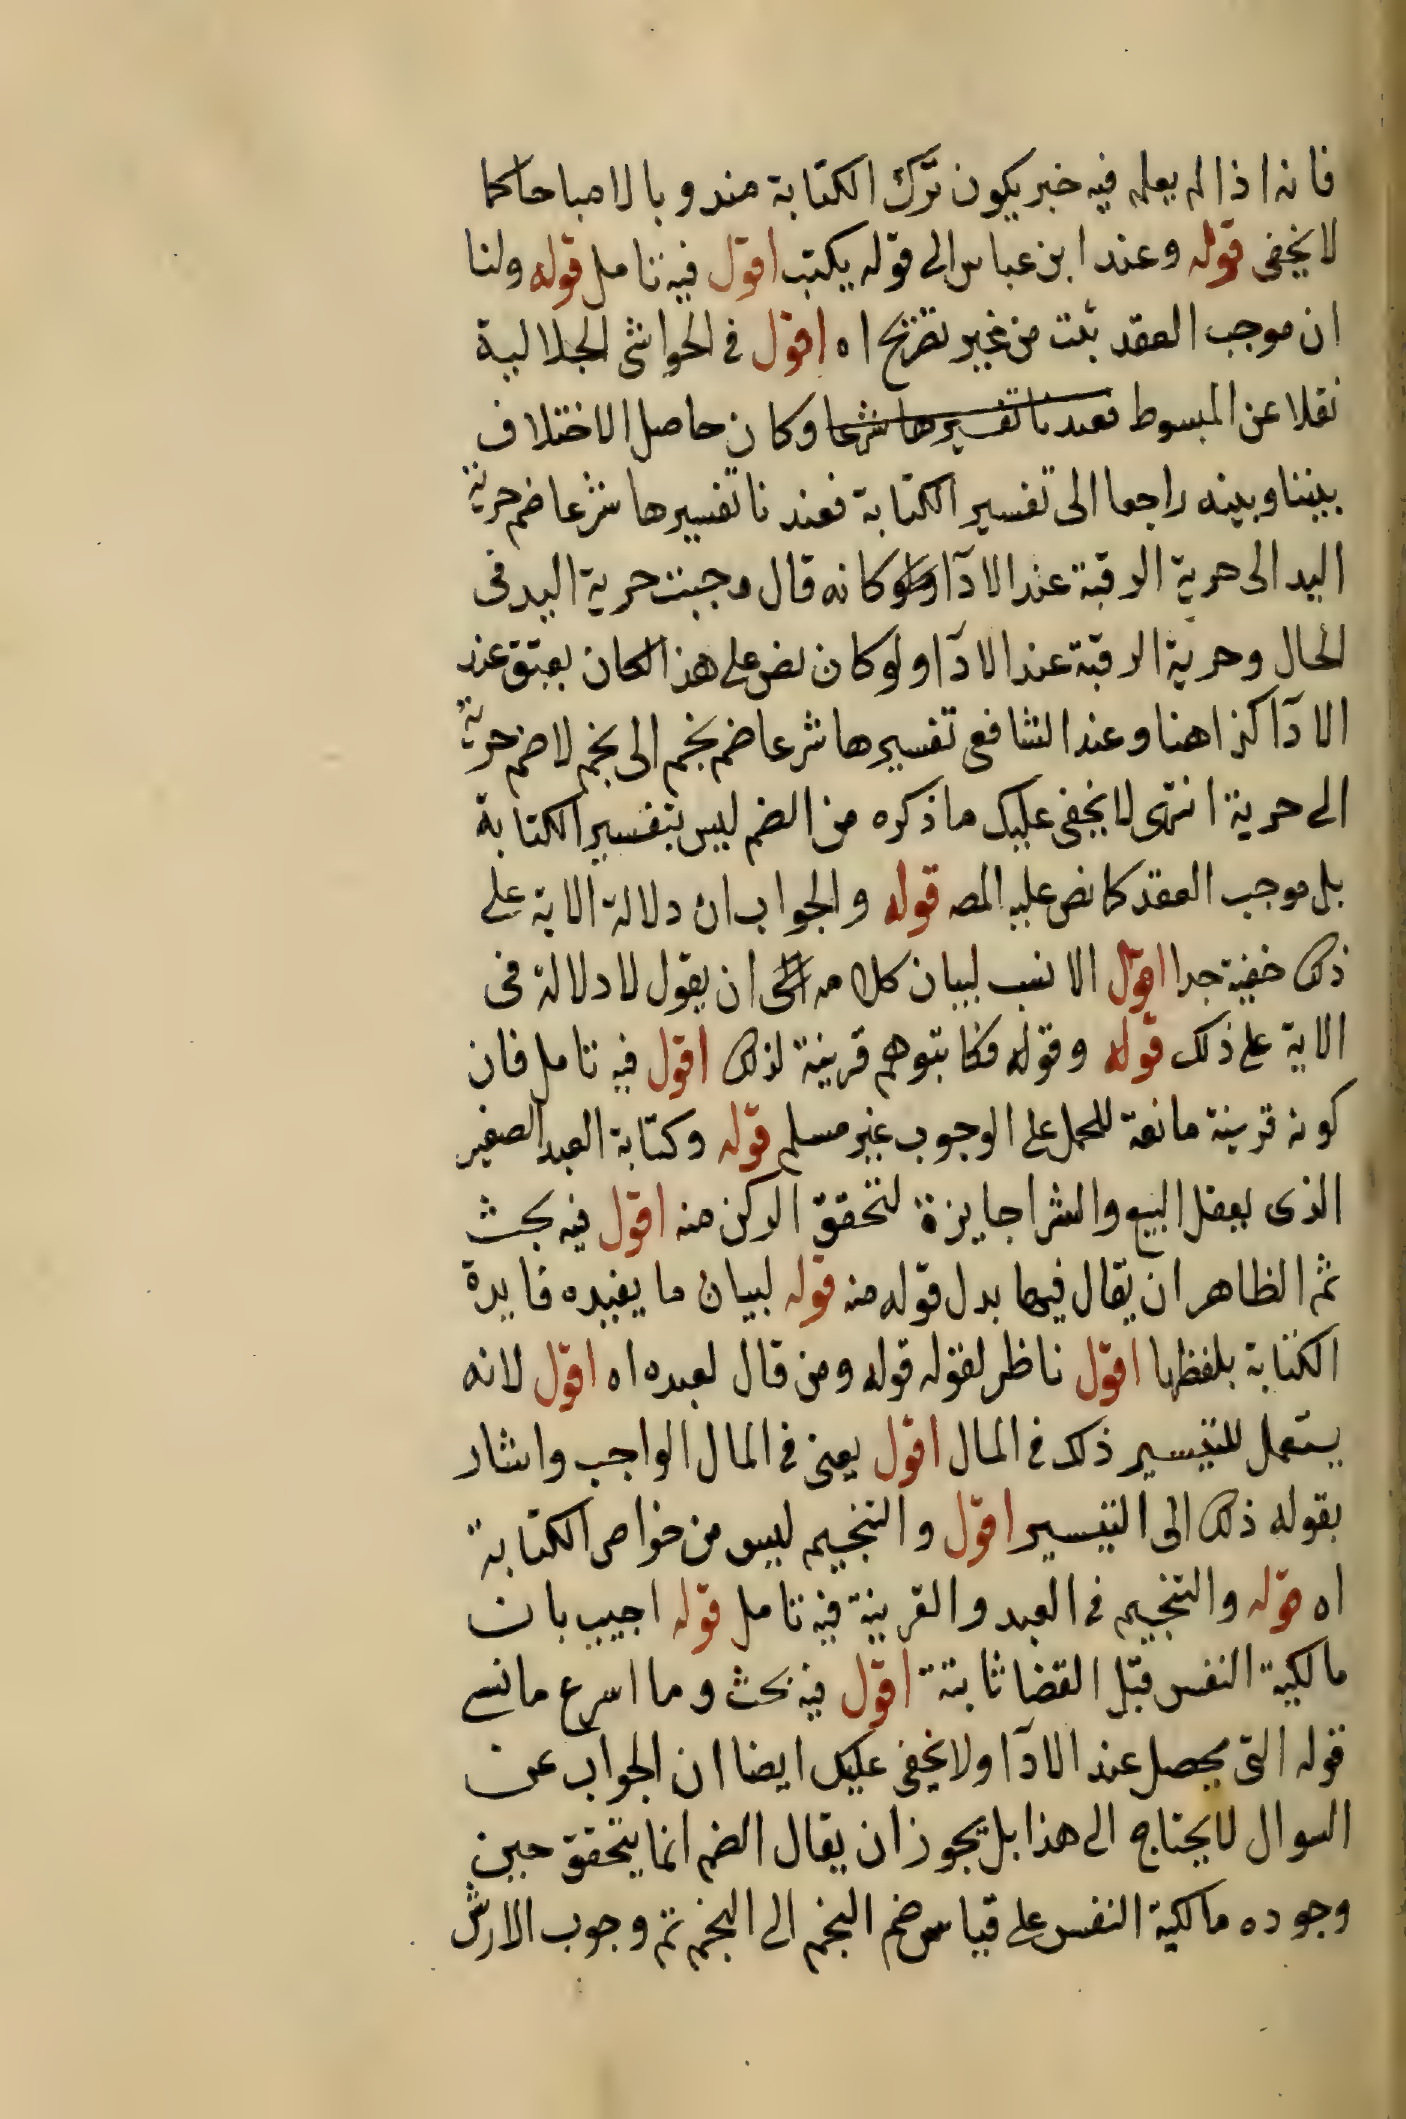 فانه اذا لم يعلم فيه خير يكون ترك الكتابة مندوبا لا مباحا كما
لا يخفى قوله وعند ابن عباس الى قوله يكتب اقول فيه تامل قوله ولنا
ان موجب العقد يثبت من غير تصريح اه اقول فى الحواشى الجلالية
نقلا عن المبسوط فعندنا تفسيرها شرعا وكان حاصل الاختلاف
بيننا وبينه راجعا الى تفسير الكتابة فعندنا تفسيرها شرعا ضم حرية
اليد الى حرية الرقبة عند الادآ وكانه قال وجبت حرية اليد فى
الحال وحرية الرقبة عند الادآ ولو كان نص على هذا لكان يعتق عند
الادآ كذا هنا وعند الشافعى تفسيرها شرعا ضم نجم الى نجم لا ضم حرية
الى حرية انتهى لا يخفى عليك ما ذكره من الضم ليس بتفسير الكتابة
بل موجب العقد كما نص عليه المص قوله والجواب ان دلالة الاية على
ذلك خفية جدا اقول الانسب لبيان كلامه ان يقول لا دلالة فى
الاية على ذلك قوله وقوله فكاتبوهم قرينة لذلك اقول فيه تامل فان
كونه قرينة مانعة للحمل على الوجوب غير مسلم قوله وكتابة العبد الصغير
الذى يعقل البيع والشرا جايزة لتحقق الركن منه اقول فيه بحث
ثم الظاهر ان يقال فيها بدل قوله منه قوله لبيان ما يفيده فايدة
الكتابة بلفظها اقول ناظر لقوله قوله ومن قال لعبده اه اقول لانه
يستعمل للتيسير ذلك فى المال اقول يعنى فى المال الواجب واشار
بقوله ذلك الى التيسير اقول والتنجيم ليس من خواص الكتابة
اه قوله والتنجيم فى العبد والقرينة فيه تامل قوله اجيب بان
مالكية النفس قبل القضا ثابتة اقول فيه بحث وما اسرع ما نسى
قوله التى يحصل عند الادآ ولا يخفى عليك ايضا ان الجواب عن
السوال لا يحتاج الى هذا بل يجوز ان يقال الضم انما يتحقق حين
وجوده مالكية النفس على قياس ضم النجم الى النجم ثم وجوب الارش